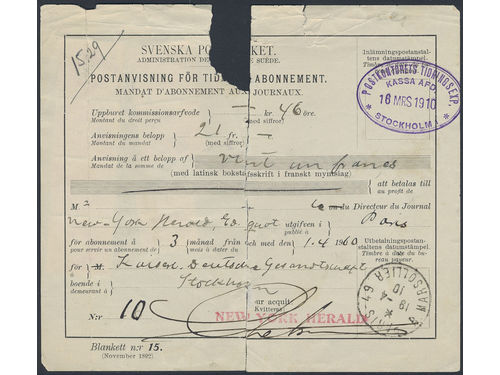 1529
SVENSKA PO KET.
ADMINISTRATION DE E SUÈDE.
POSTANVISNING FÖR TID -ABONNEMENT.
MANDAT D'ABONNEMENT AUX JOURNAUX.
Inlämningspostanstaltens datumstämpel.
POSTKONTORETS TIDNINGSEXP.
KASSA AFD
16 MRS 1910
STOCKHOLM
Uppburet kommissionsarfvode — kr 46 öre.
Montant du droit perçu (med siffror)
Anvisningens belopp 21 fr. —
Montant du mandat (med siffror)
Anvisning å ett belopp af vingt un francs
Mandat de la somme de (med latinsk bokstafsskrift i franskt myntslag)
att betalas till
au profit de
M. le Directeur du Journal
New-York Herald, Ed. quot utgifven i Paris
publié à
för abonnement å 3 månad från och med den 1.4 1910
pour servir un abonnement de mois à dater du
Utbetalningspostanstaltens datumstämpel.
Timbre à date du bureau payeur.
för M. Kaiserl. Deutsche Gesandtschaft
boende i Stockholm
demeurant à
PARIS 49
19 4 10
N:r 10
our acquit
Kvitteras
NEW YORK HERALD
Blankett n:r 15.
(November 1892)